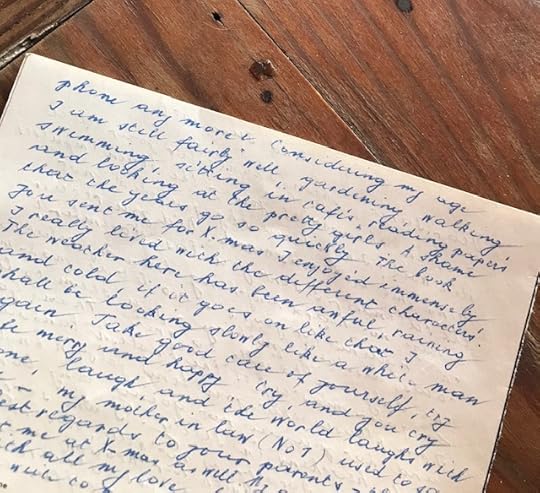 phone any more. Considering my age
I am still fairly well gardening walking
swimming, sitting in cafés reading papers
and looking at the pretty girls. A shame
that the years go so quickly. The book
you sent me for X-mas I enjoied immensely
I really lived with the different characters.
The weather here has been awful, raining
and cold if it goes on like that I
shall be looking slowly like a white man
again. Take good care of yourself, try
be merry and happy cry and you cry
one, laugh and the World laughs with
my mother in law (NO 1) used to say
est regards to your parents
me at X-mas as well
all my love